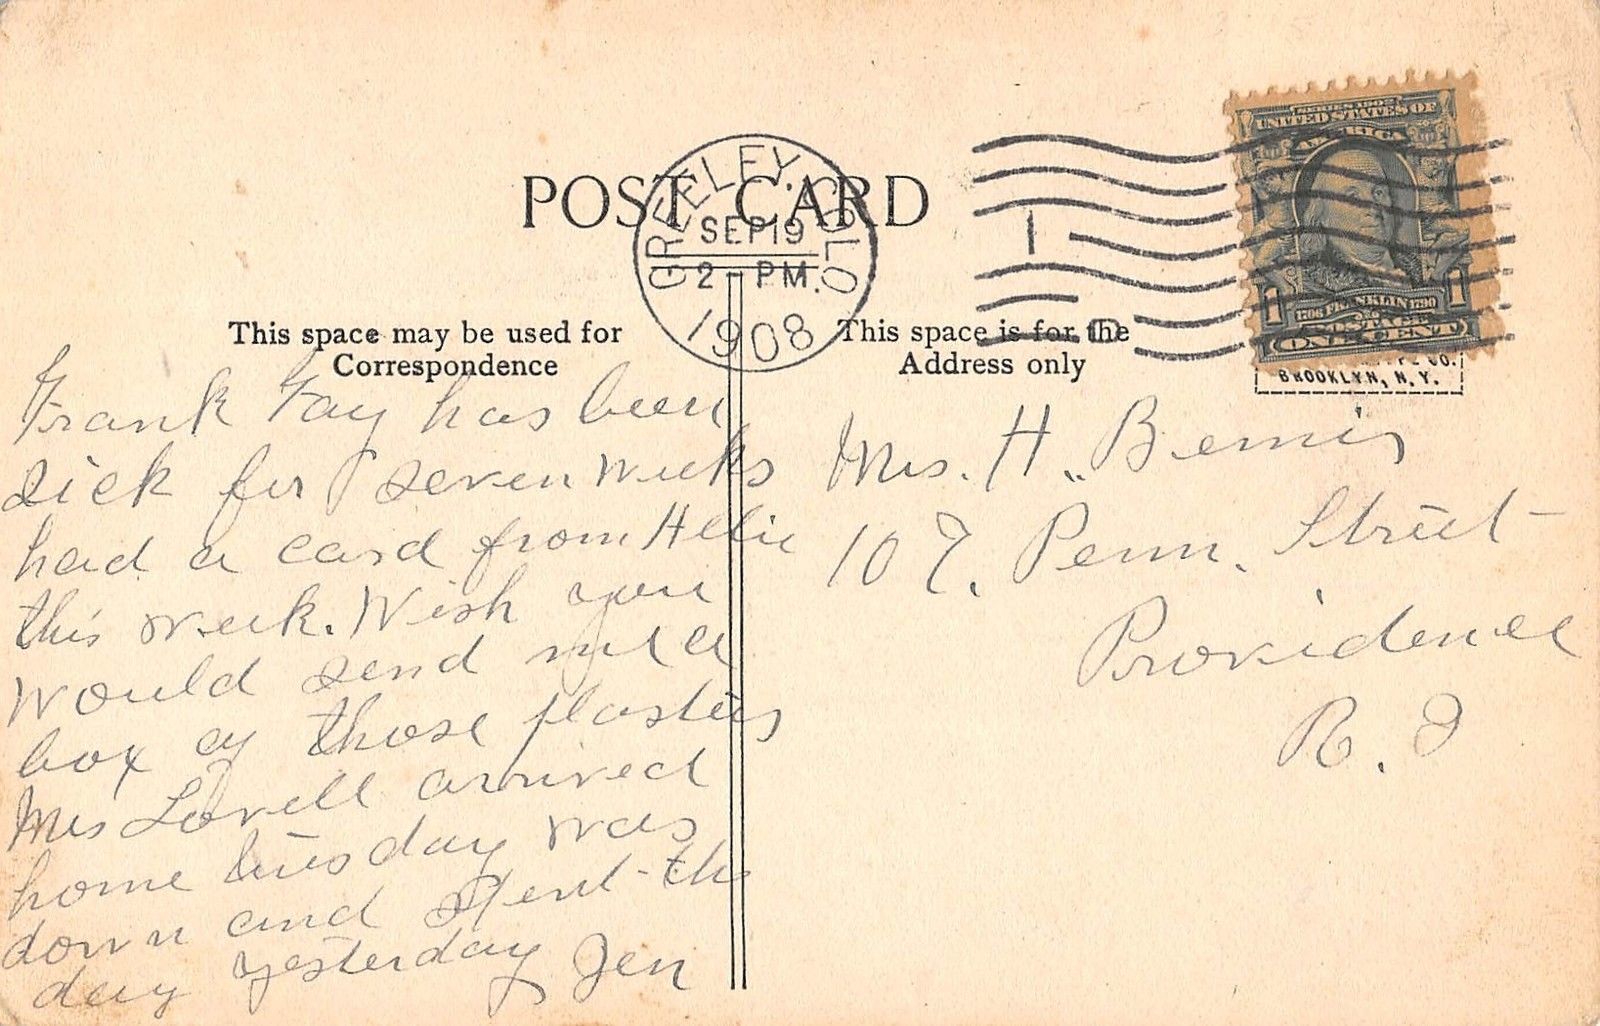 POST CARD
GREELEY, COLO.
SEP 19
2 - PM.
1908
1
D
SERIES 1902
UNITED STATES OF
AMERICA
1706 FRANKLIN 1790
1 1
POSTAGE
ONE CENT
CO.
BROOKLYN, N. Y.
This space may be used for
Correspondence
Frank Fay has been
sick for seven weeks
had a card from
this week. Wish you
would send me a
box of those plasters
Mrs Lovell arrived
home tuesday was
down and spent the
day yesterday Jen
This space is for the
Address only
Mrs. H. Bemis
107. Penn. Street
Providence
R. I